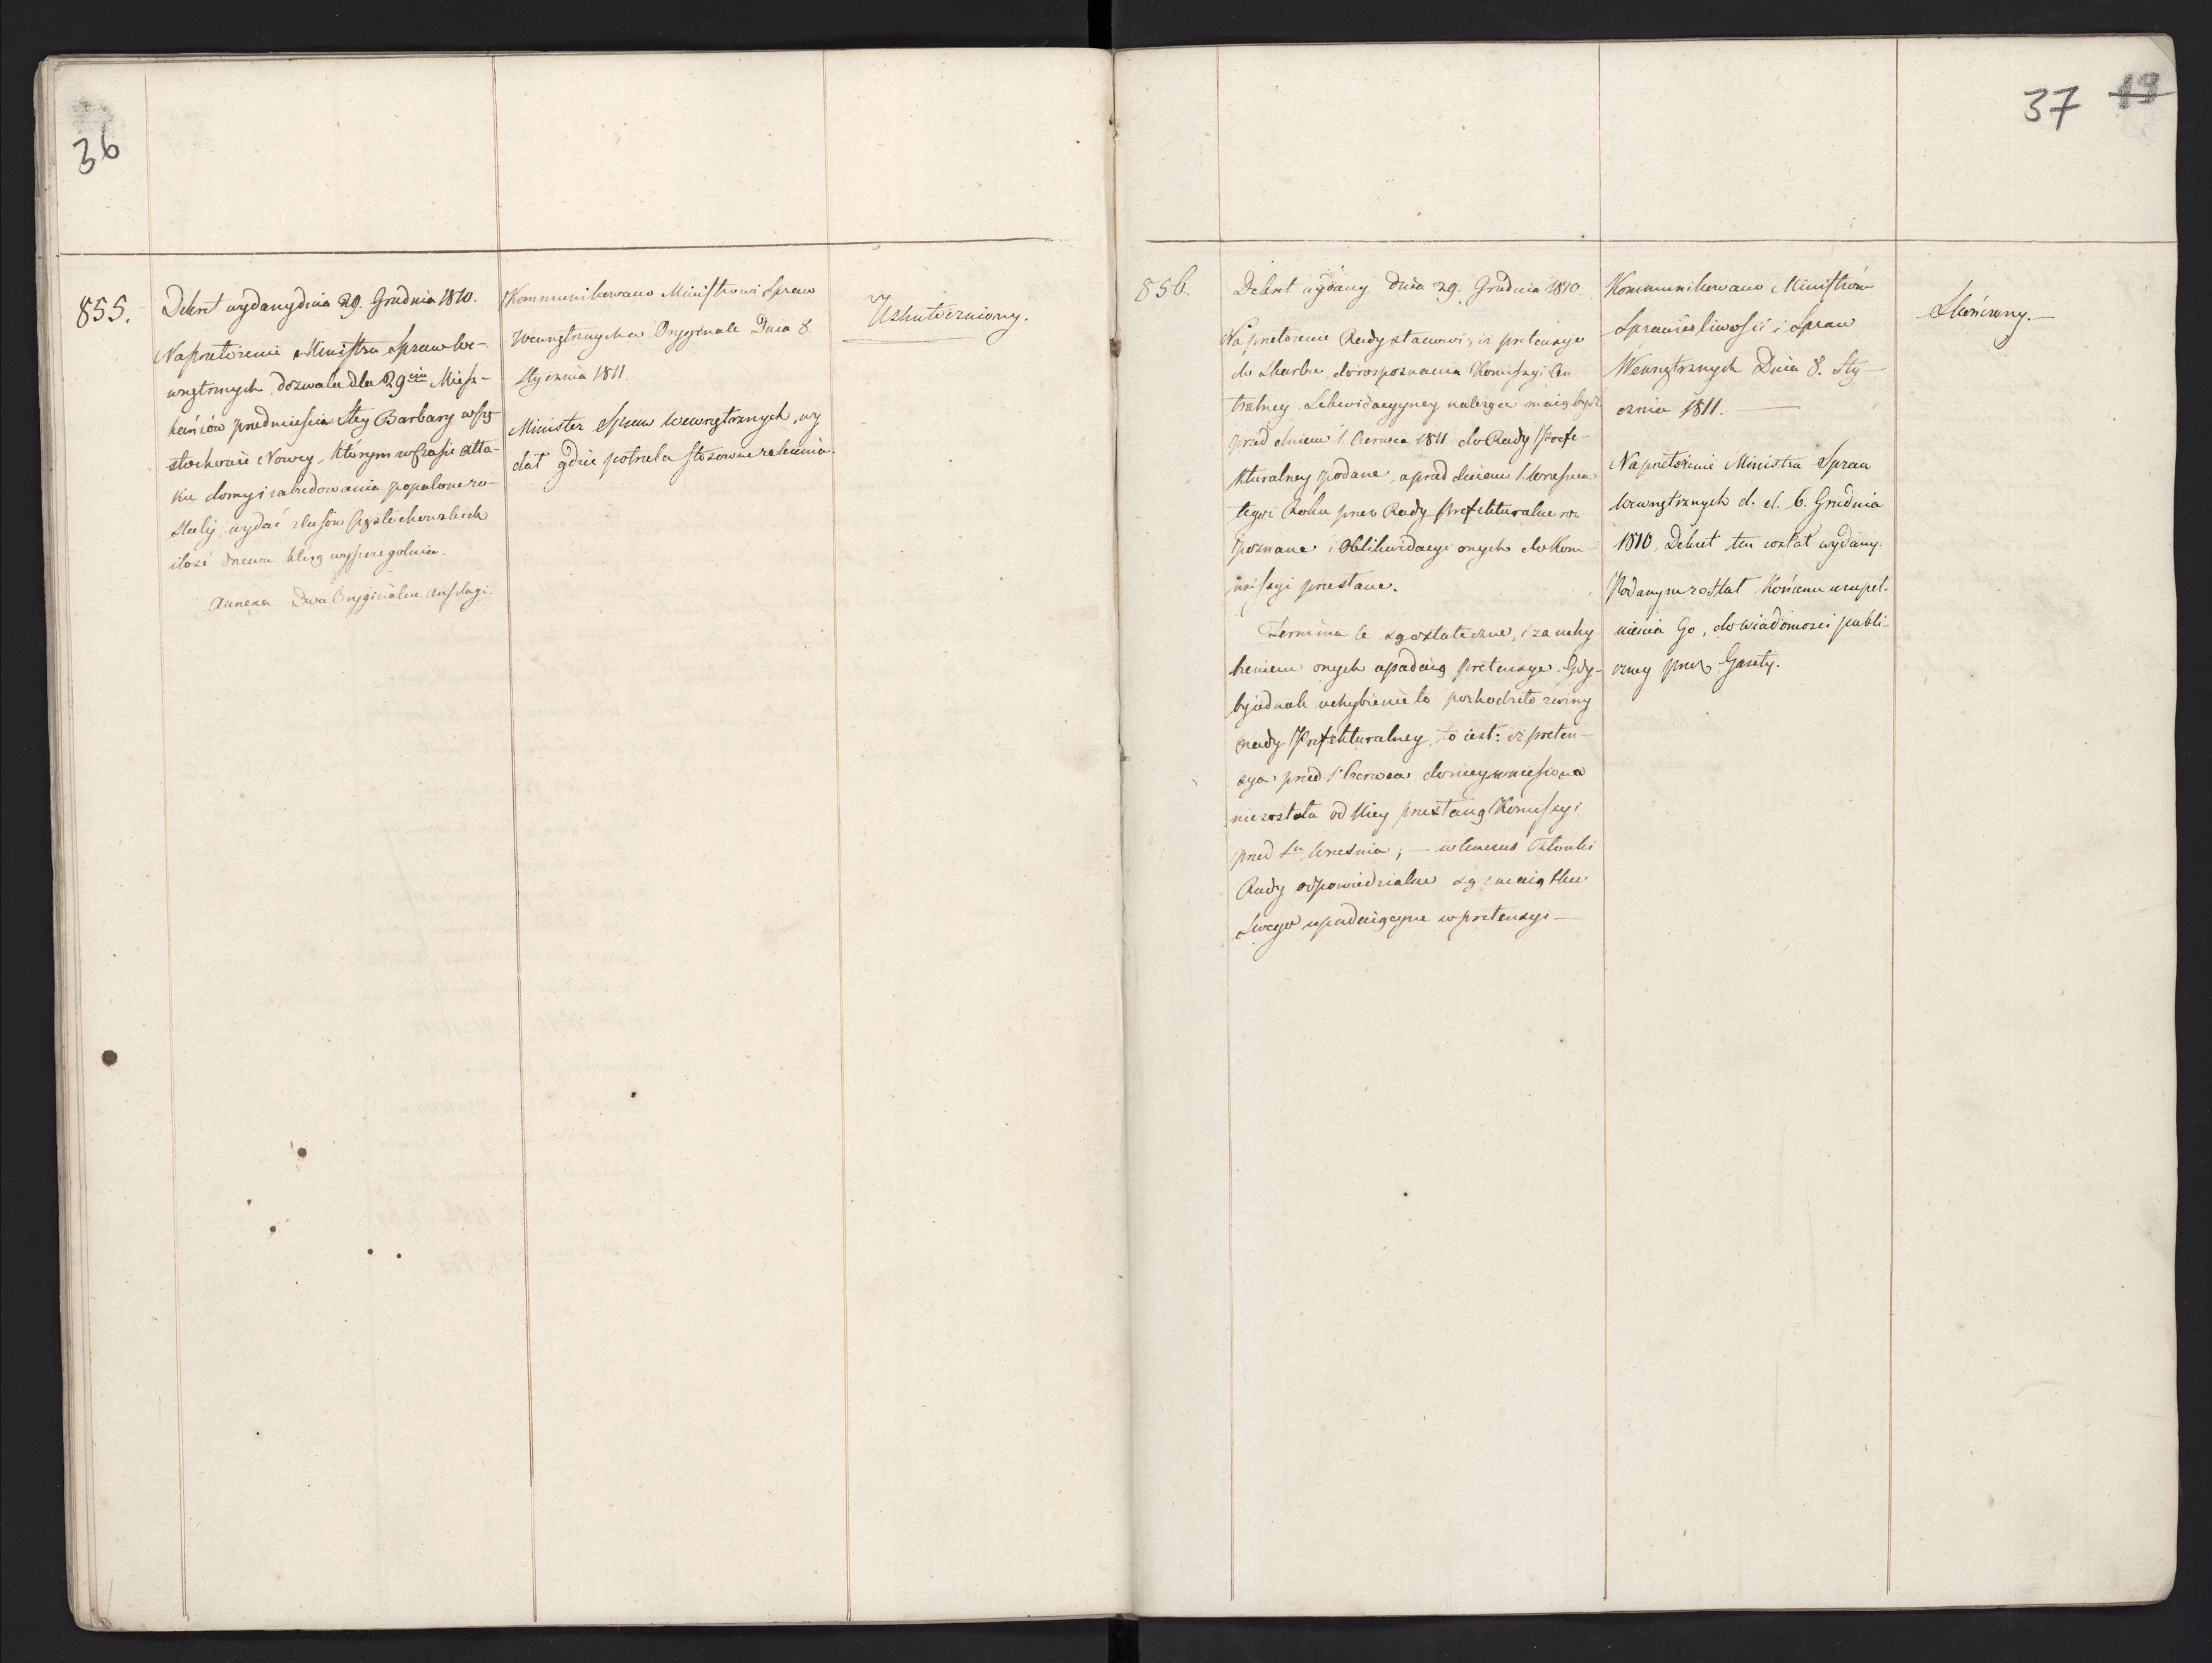 36
855.
Dekret wydany dnia 29. Grudnia 1810.
Na przełożenie Ministra Spraw We-
wnętrznych dozwala dla 29ciu Miesz-
kańców przedmieścia Stey Barbary w Czę-
stochowie Nowey, którym w czasie atta-
ku domy i zabudowania popalone zo-
stały, wydać z lasów Częstochowskich
ilość drzewa którą wyszczególnia.
Annexa Dwa Oryginalne Anszlagi.
Kommunikowano Ministrowi Spraw
Wewnętrznych w Oryginale Dnia 8
Stycznia 1811
Minister Spraw Wewnętrznych, wy
dał gdzie potrzeba stosowne zalecenia.
Uskuteczniony.
37 19
856.
Dekret wydany dnia 29. Grudnia 1810.
Na przełożenie Rady stanowi, iż pretensye
do Skarbu, do rozpoznania Komissyi Cen
tralney Likwidacyyney należące maią bydź
przed dniem 1 Czerwca 1811 do Rady Prefe-
kturalney podane, a przed dniem 1 Września
tegoż Roku przez Rady Prefekturalne roz
poznane i Oblikwidacye onych do Kom-
missyi przesłane.
Termina te są ostateczne, i za uchy
bieniem onych upadaią pretensye. Gdy-
by jednak uchybienie to pochodziło z winy
Rady Prefekturalney, to iest: iż preten-
sya przed 1 Czerwca do niey wniesiona
nie została od Niey przesłaną Komissyi
przed 1m Września; - wówczas Członki
Rady odpowiedzialne są z maiątku
Swego upadaiącym w pretensyi -
Kommunikowano Ministrom
Sprawiedliwości i Spraw
Wewnętrznych Dnia 8. Sty-
cznia 1811. -
Na przełożenie Ministra Spraw
Wewnętrznych d. d. 6. Grudnia
1810, Dekret ten został wydany.
Podanym został końcem uzupeł-
nienia Go, do wiadomości publi-
czney przez Gazety.
Skończony. -